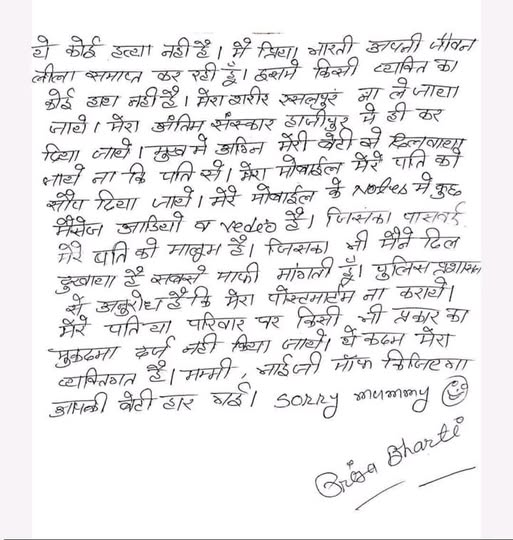 ये कोई हत्या नहीं है। मैं प्रिया भारती अपनी जीवन
लीला समाप्त कर रही हूँ। इसमे किसी व्यक्ति का
कोई हाथ नहीं है। मेरा शरीर रसलपुर ना ले जाया
जाये। मेरा अंतिम संस्कार हाजीपुर मे ही कर
दिया जाये। मुख मे अग्नि मेरी बेटी से दिलवाया
जाये ना कि पति से। मेरा मोबाईल मेरे पति को
सौप दिया जाये। मेरे मोबाईल के Notes मे कुछ
मैसेज आडियो व vedeo है। जिसका पासवर्ड
मेरे पति को मालूम है। जिसका भी मैने दिल
दुखाया है सबसे माफी मांगती हूँ। पुलिस प्रशासन
से अनुरोध है कि मेरा पोस्टमार्टम ना कराये।
मेरे पति या परिवार पर किसी भी प्रकार का
मुकदमा दर्ज नही किया जाये। ये कदम मेरा
व्यक्तिगत है। मम्मी, भाईजी माँफ किजिएगा
आपकी बेटी हार गई। sorry mummy
Priya Bharti